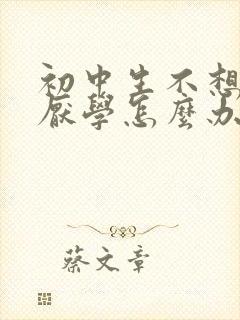 初中生不想
厭學怎麼办
蔡文章